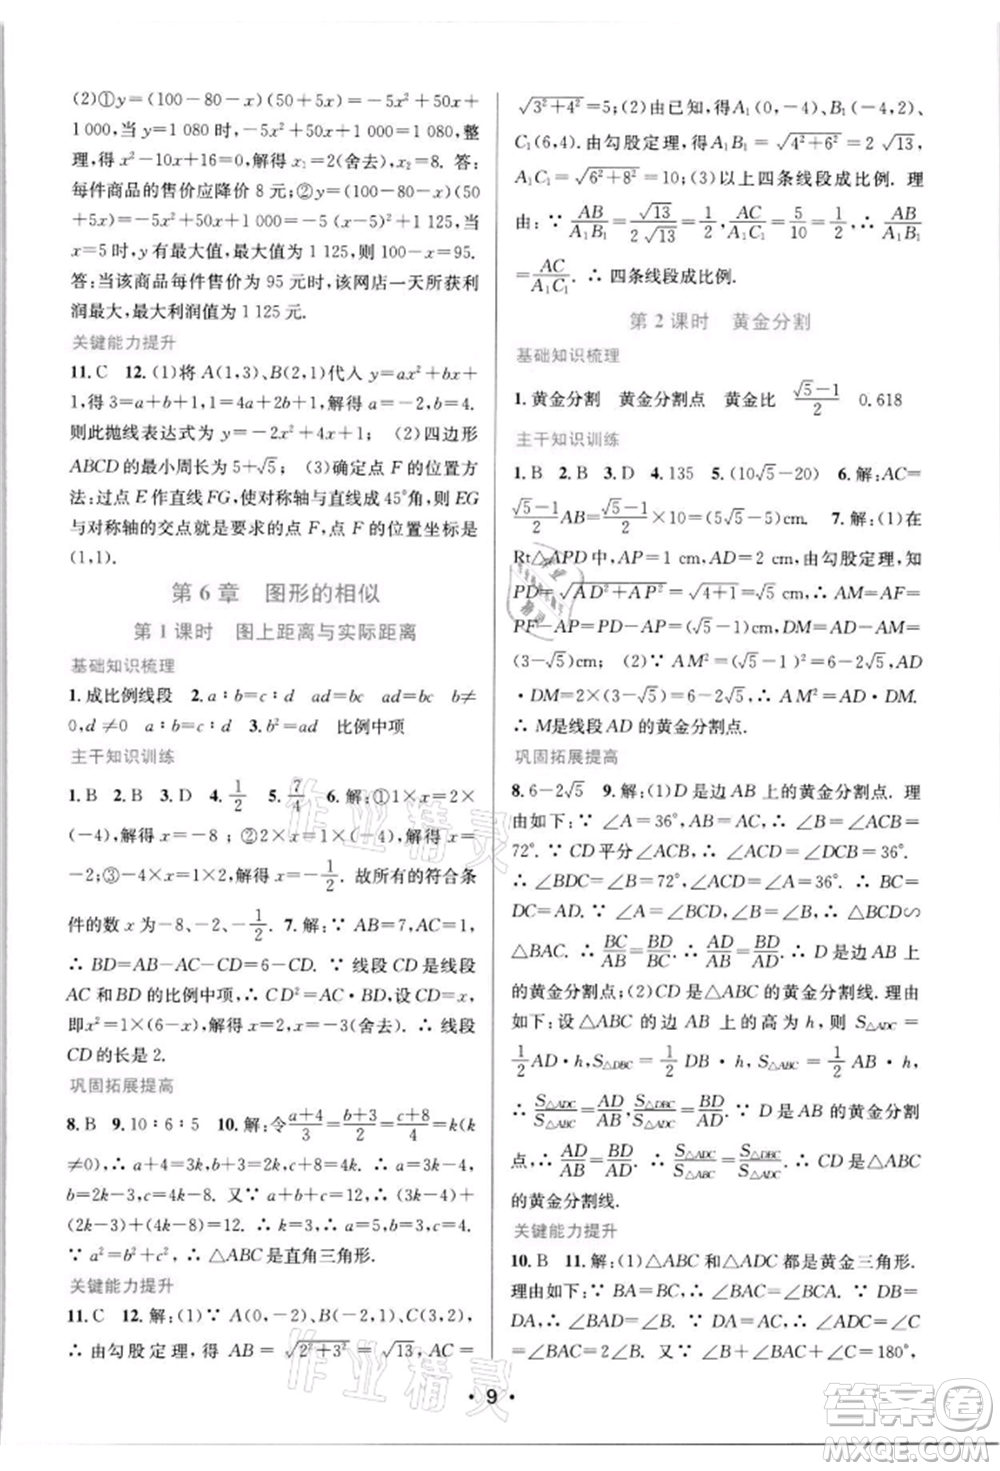 (2)①y=(100-80-x)(50+5x)=-5x²+50x+
1 000,当 y=1 080 时,-5x²+50x+1 000=1 080,整
理,得 x²-10x+16=0,解得 x₁=2(舍去),x₂=8. 答:
每件商品的售价应降价 8 元;②y=(100-80-x)(50
+5x)=-5x²+50x+1 000=-5(x-5)²+1 125,当
x=5 时,y 有最大值,最大值为 1 125,则 100-x=95.
答:当该商品每件售价为 95 元时,该网店一天获得利
润最大,最大利润值为 1 125 元.
关键能力提升
11.C 12.(1)将 A(1,3)、B(2,1)代入 y=ax²+bx+
1,得 3=a+b+1,1=4a+2b+1,解得 a=-2,b=4.
则此抛线表达式为 y=-2x²+4x+1; (2)四边形
ABCD 的最小周长为 5+√5; (3)确定点 F 的位置方
法:过点 E 作直线 FG,使对称轴与直线成 45°角,则 EG
与对称轴的交点就是要求的点 F,点 F 的位置坐标是
(1,1).
第 6 章 图形的相似
第 1 课时 图上距离与实际距离
基础知识梳理
1.成比例线段 2.a∶b=c∶d ad=bc ad=bc b≠
0,d≠0 a∶b=c∶d 3.b²=ac 比例中项
主干知识训练
1.B 2.B 3.D 4.1/2 5.7/4 6.解:①1×x=2×
(-4),解得 x=-8;②1×(-4)=2x,解得 x=
-2;③-4x=1×2,解得 x=-1/2. 故所有的符合条
件的数 x 为-8、-2、-1/2. 7.解:∵ AB=7,AC=1,
∴ BD=AB-AC=7-1=6. ∵ 线段 CD 是线段
AC 和 BD 的比例中项,∴ CD²=AC•BD,设 CD=x,
即x²=1×(6-x),解得 x=2,x=-3(舍去). ∴ 线段
CD 的长是 2.
巩固拓展提高
8.B 9.10∶6∶5 10.解:令(a+4)/3=(b+3)/2=(c+8)/4=k(k
≠0),∴ a+4=3k,b+3=2k,c+8=4k,∴ a=3k-4,
b=2k-3,c=4k-8. 又∵ a+b+c=12,∴ (3k-4)+
(2k-3)+(4k-8)=12,∴ k=3. ∴ a=5,b=3,c=4.
∵ a²=b²+c²,∴ △ABC 是直角三角形.
关键能力提升
11.C 12.解:(1)∵ A(0,-2),B(-2,1),C(3,2),
∴ 由勾股定理,得 AB=√(2²+3²)=√13,AC=
√(3²+4²)=5;(2)由已知,得 A₁(0,-4),B₁(-4,2),
C₁(6,4). 由勾股定理,得 A₁B₁=√(4²+6²)=2√13,
A₁C₁=√(6²+8²)=10;(3)以上四条线段成比例. 理
由:∵ AB/A₁B₁=√13/2√13=1/2,AC/A₁C₁=5/10=1/2,∴ AB/A₁B₁=
AC/A₁C₁. ∴ 四条线段成比例.
第 2 课时 黄金分割
基础知识梳理
1.黄金分割 黄金分割点 黄金比 (√5-1)/2 0.618
主干知识训练
1.B 2.B 3.D 4.135 5.(10√5-20) 6.解:AC=
(√5-1)/2 AB=(√5-1)/2×10=(5√5-5)cm. 7.解:(1)在
Rt△APD 中,AP=1 cm,AD=2 cm,由勾股定理,知
PD=√(AD²+AP²)=√(4+1)=√5(cm),∴ AM=AF=
PF-AP=PD-AP=(√5-1)cm,DM=AD-AM=
(3-√5)cm;(2)∵ AM²=(√5-1)²=6-2√5,AD
•DM=2×(3-√5)=6-2√5,∴ AM²=AD•DM.
∴ M是线段 AD 的黄金分割点.
巩固拓展提高
8.6-2√5 9.解:(1)D 是边 AB 的黄金分割点. 理
由如下:∵ ∠A=36°,AB=AC,∴ ∠B=∠ACB=
72°. ∵ CD 平分∠ACB,∴ ∠ACD=∠BCD=36°.
∴ ∠BDC=∠B=72°,∠ACD=∠A=36°. ∴ BC=
DC=AD. ∵ ∠A=∠BCD,∠B=∠B,∴ △BCD∽
△BAC. ∴ BC/AB=BD/BC. ∴ AD/AB=BD/AD. ∴ D 是边 AB 上的
黄金分割点;(2)CD 是△ABC 的黄金分割线. 理由
如下:设△ABC 的边 AB 上的高为 h,则 S△ADC=
1/2AD•h,S△DBC=1/2BD•h,S△ABC=1/2AB•h,
∴ S△ADC/S△ABC=AD/AB,S△DBC/S△ADC=BD/AD. ∵ D 是 AB 的黄金分割
点,∴ AD/AB=BD/AD. ∴ S△ADC/S△ABC=S△DBC/S△ADC. ∴ CD 是△ABC
的黄金分割线.
关键能力提升
10.B 11.解:(1)△ABC 和△ADC 都是黄金三角形.
理由如下:∵ BA=BC,∴ ∠BAC=∠C. ∵ BD=
DA,∴ ∠B=∠BAD. ∵ ∠BAD=∠DAC=∠B,
∴ ∠BAC=2∠B. 又∵ ∠B+∠BAC+∠C=180°,
• 9 •
作业精灵
作业精灵
答案圈
MXQE.COM